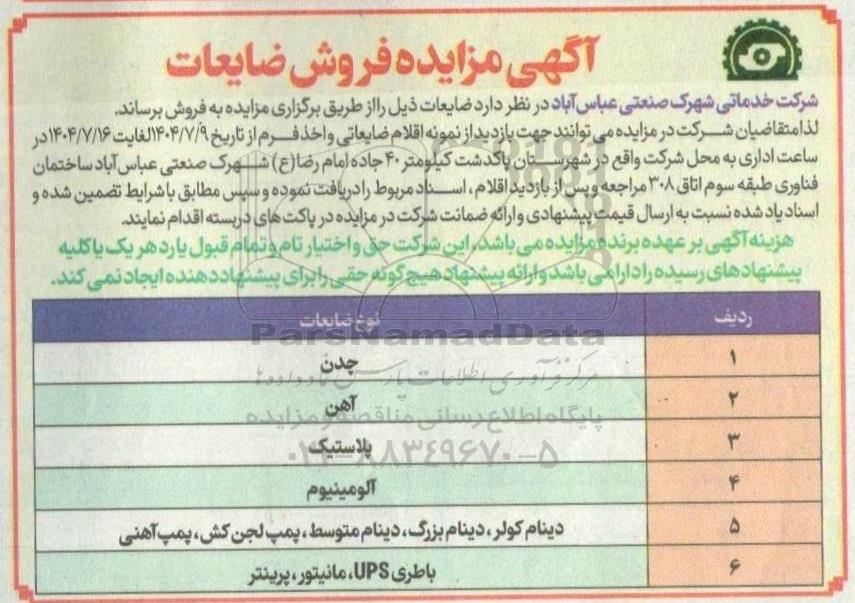 آگهی مزایده فروش ضایعات
شرکت خدماتی شهرک صنعتی عباس‌آباد در نظر دارد ضایعات ذیل رااز طریق برگزاری مزایده به فروش برساند.
لذامتقاضیان شرکت در مزایده می توانند جهت بازدیداز نمونه اقلام ضایعاتی واخذ فرم از تاریخ ۱۴۰۴/۷/۹لغایت ۱۴۰۴/۷/۱۶در
ساعت اداری به محل شرکت واقع در شهرستان پاکدشت کیلومتر ۴۰ جاده امام رضا(ع) شهرک صنعتی عباس آباد ساختمان
فناوری طبقه سوم اتاق ۳۰۸ مراجعه و پس از بازدید اقلام، اسناد مربوط رادریافت نموده و سپس مطابق باشرایط تضمین شده و
اسناد یاد شده نسبت به ارسال قیمت پیشنهادی وارائه ضمانت شرکت در مزایده در پاکت های دربسته اقدام نمایند.
هزینه آگهی بر عهده برنده مزایده می باشد، این شرکت حق و اختیار تام و تمام قبول یارد هر یک یا کلیه
پیشنهادهای رسیده رادارا می باشد وارائه پیشنهاد هیچ گونه حقی را برای پیشنهاددهنده ایجاد نمی کند.
ردیف نوع ضایعات
۱ چدن
۲ آهن
۳ پلاستیک
۴ آلومینیوم
۵ دینام کولر، دینام بزرگ، دینام متوسط، پمپ لجن کش، پمپ آهنی
۶ باطری UPS، مانیتور، پرینتر
ParsNamadData
مرکز فرآوری اطلاعات پارس نماد داده ها
پایگاه اطلاع رسانی مناقصه و مزایده
۰۲۱-۸۸۳۴۹۶۷۰-۵